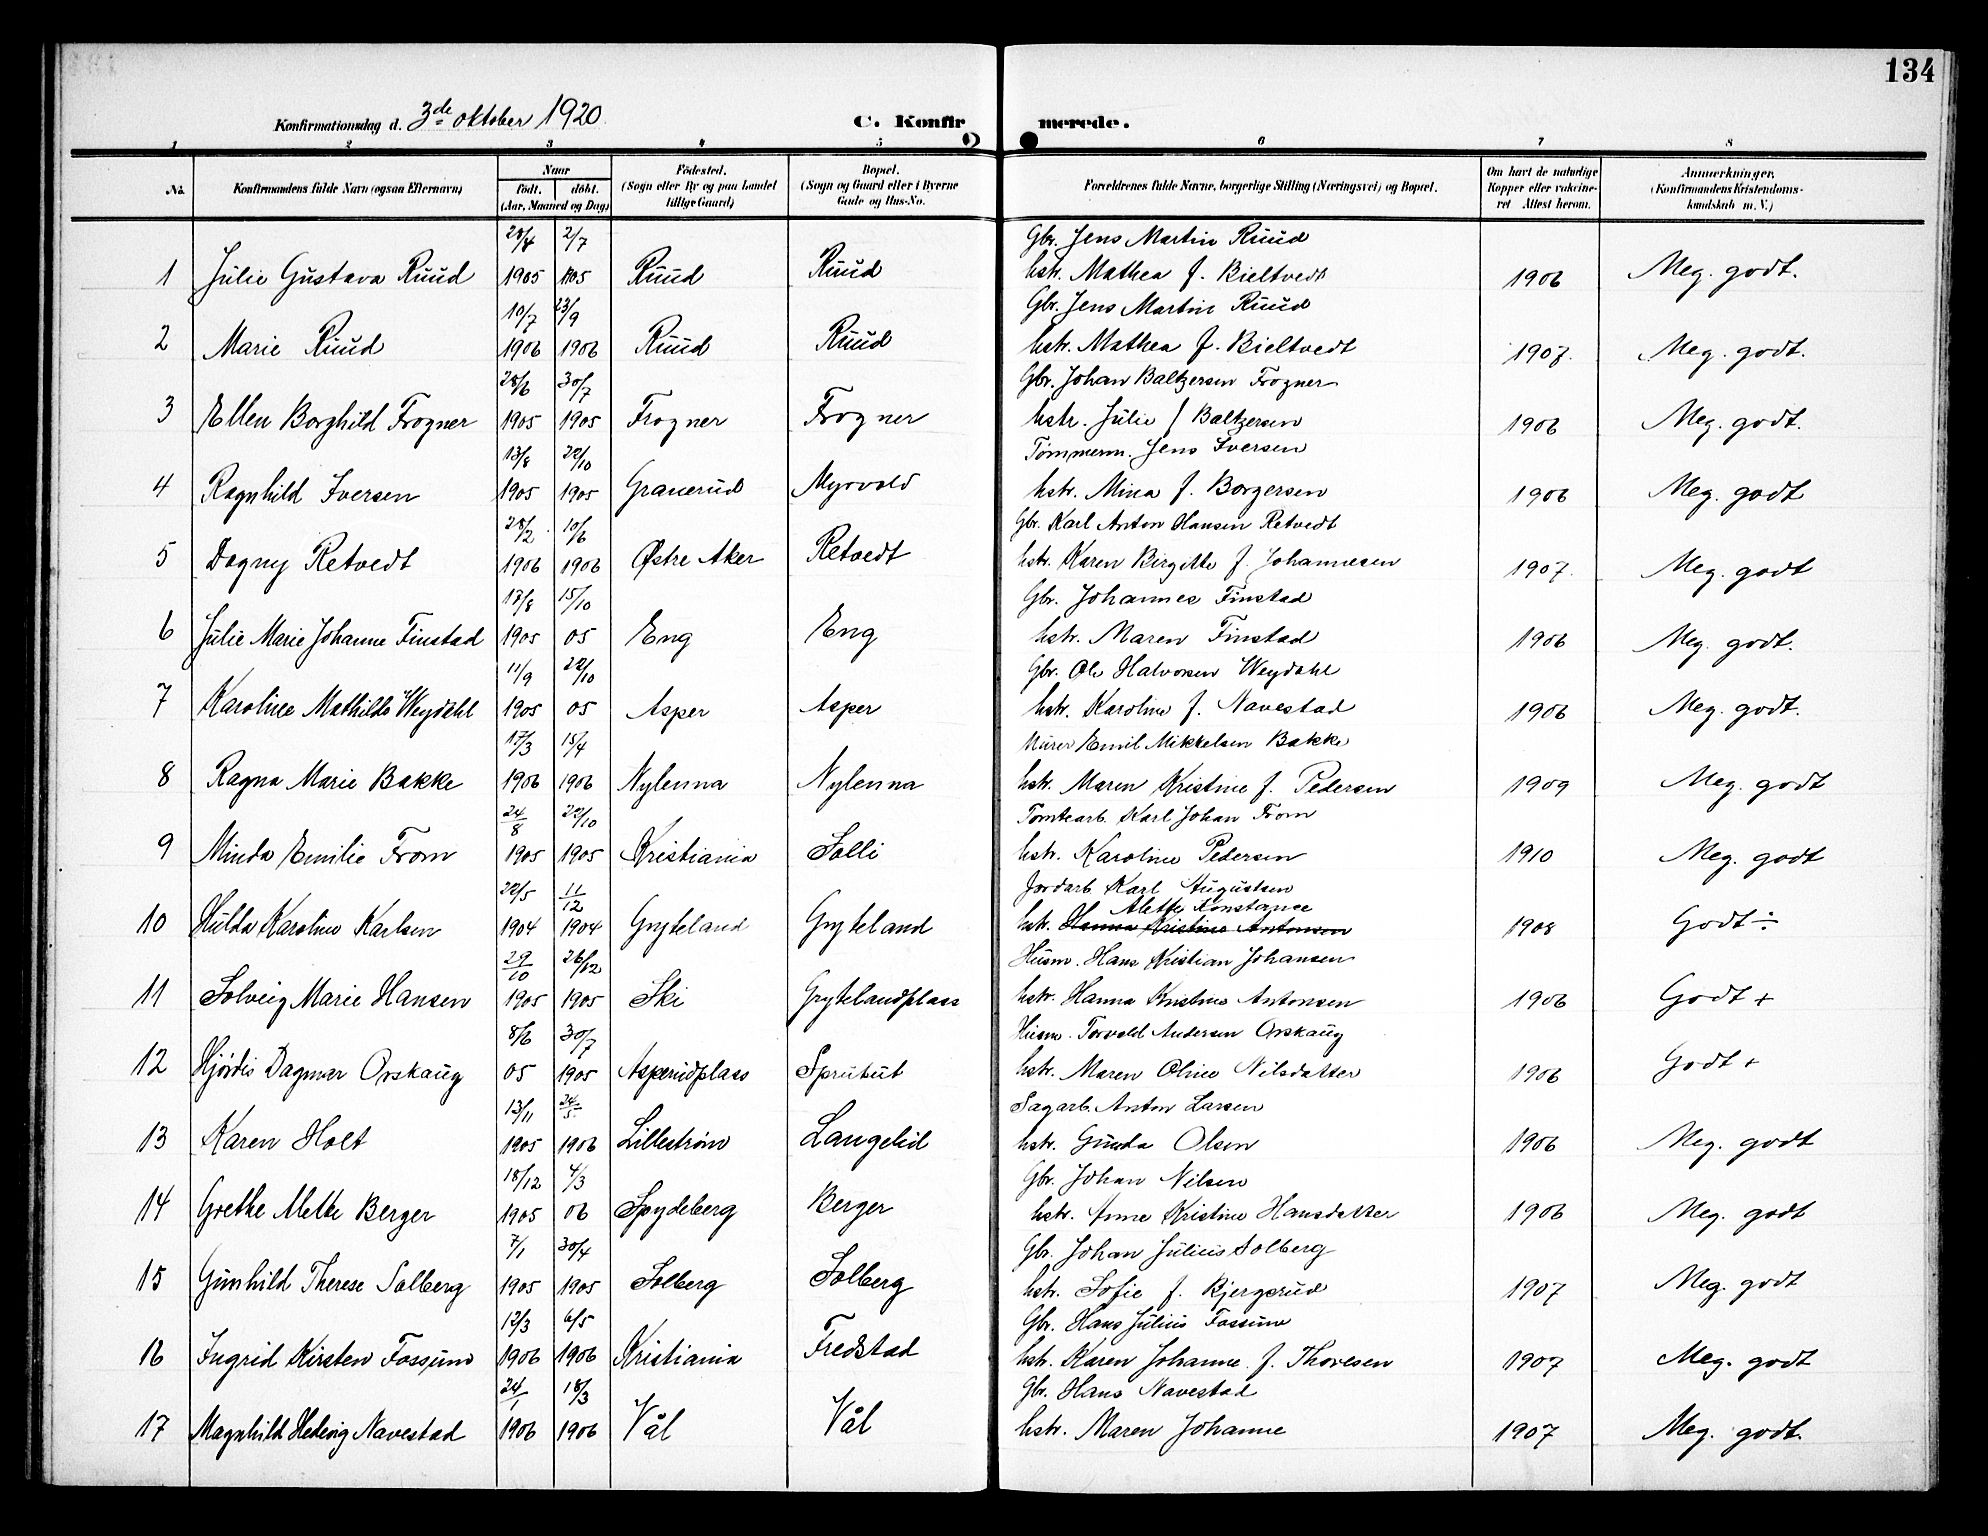 134
Konfirmationsdag d. 3de oktober 1920
C. Konfirmerede.
1 2 3 4 5 6 7 8
No. Konfirmandens fulde Navn (ogsaa Efternavn) Naar født. døbt. (Aar, Maaned og Dag) Fødested. (Sogn eller By og paa Landet tillige Gaard) Bopæl. (Sogn og Gaard eller i Byerne Gade og Hus-No. Forældrenes fulde Navne, borgerlige Stilling (Næringsvei) og Bopæl. Om havt de naturlige Kopper eller vaccineret Attest herom. Anmerkninger, (Konfirmandens Kristendomskundskab m. V.)
28/4 2/7 Gbr. Jens Martin Ruud
1 Julie Gustava Ruud 1905 1905 Ruud Ruud hstr. Mathea f. Bieltvedt 1906 Meg. godt.
10/7 23/9 Gbr. Jens Martin Ruud
2 Marie Ruud 1906 1906 Ruud Ruud hstr. Mathea f. Bieltvedt 1907. Meg. godt.
28/6 30/7 Gbr. Johan Baltzersen Frogner
3 Ellen Borghild Frogner 1905 1905 Frogner Frogner hstr. Julie f Baltzersen 1906 Meg. godt.
13/8 22/10 Tømmerm. Jens Iversen
4 Ragnhild Iversen 1905 1905 Granerud Myrvold hstr. Mina f. Borgersen 1906 Meg. godt
28/2 10/6 Gbr. Karl Anton Hansen Retvedt
5 Dagny Retvedt 1906 1906 Østre Aker Retvedt hstr. Karen Birgitte f. Johannesen 1907. Meg. godt
17/8 15/10 Gbr. Johannes Finstad
6 Julie Marie Johanne Finstad 1905 05 Eng Eng hstr. Maren Finstad 1906 Meg. godt.
11/9 22/10 Gbr. Ole Halvorsen Weydahl
7 Karoline Mathilde Weydahl 1905 05 Asper Asper hstr. Karoline f. Navestad 1906 Meg. godt.
17/3 15/4 Murer Emil Mikkelsen Bakke
8 Ragna Marie Bakke 1906 1906 Nylenna Nylenna hstr. Maren Kristine f. Pedersen 1909 Meg. godt
24/8 22/10 Tomtearb. Karl Johan From
9 Minda Emilie From 1905 1905 Kristiania Solli hstr. Karoline Pedersen 1910 Meg. godt
22/5 11/12 Jordarb. Karl Augustsen
Alette Konstance
10 Hulda Karoline Karlsen 1904 1904 Gryteland Gryteland hstr. Hanna Kristine Antonsen 1908 Godt ÷
29/10 26/12 Husm. Hans Kristian Johansen
11 Solveig Marie Hansen 1905 1905 Ski Grytelandplass hstr. Hanna Kristine Antonsen 1906 Godt +
8/6 30/7 Husm. Torvald Andersen Orskaug
12 Hjørdis Dagmar Orskaug 05 1905 Asperudplass Sprutut hstr. Maren Oline Nilsdatter 1906 Godt +
13/11 24/5 Sagarb. Anton Larsen
13 Karen Holt 1905 1906 Lillestrøm Langelid hstr. Gunda Olsen 1906 Meg. godt
18/12 4/3 Gbr. Johan Nilsen
14 Grethe Mette Berger 1905 06 Spydeberg Berger hstr. Anne Kristine Hansdatter 1906 Meg. godt
7/1 30/4 Gbr. Johan Julius Solberg
15 Gunhild Therese Solberg 1905 1905 Solberg Solberg hstr. Sofie f. Bjergerud 1907 Meg. godt
12/3 6/5 Gbr. Hans Julius Fossum
16 Ingrid Kirsten Fossum 1906 1906 Kristiania Fredstad hstr. Karen Johanne f. Thoresen 1907 Meg. godt
24/1 18/3 Gbr. Hans Navestad
17 Magnhild Hedvig Navestad 1906 1906 Vål Vål hstr. Maren Johanne 1907 Meg. godt.